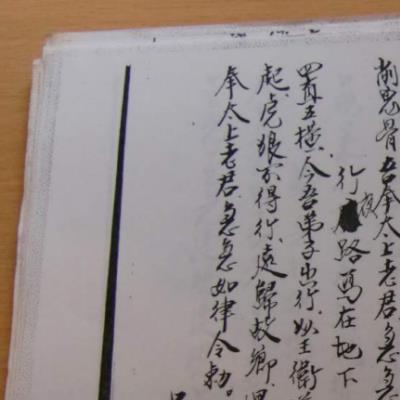 削鬼骨吾奉太上老君急急
行夜路写在地下
四直五横今吾弟子出行以王衛
起虎狼不得行遠歸故鄉
奉太上老君急急如律令勅。